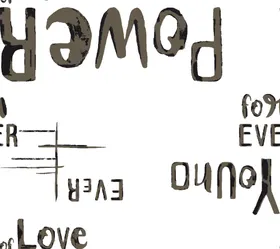 PoweR
foR
EVER
Young
EVER
of Love